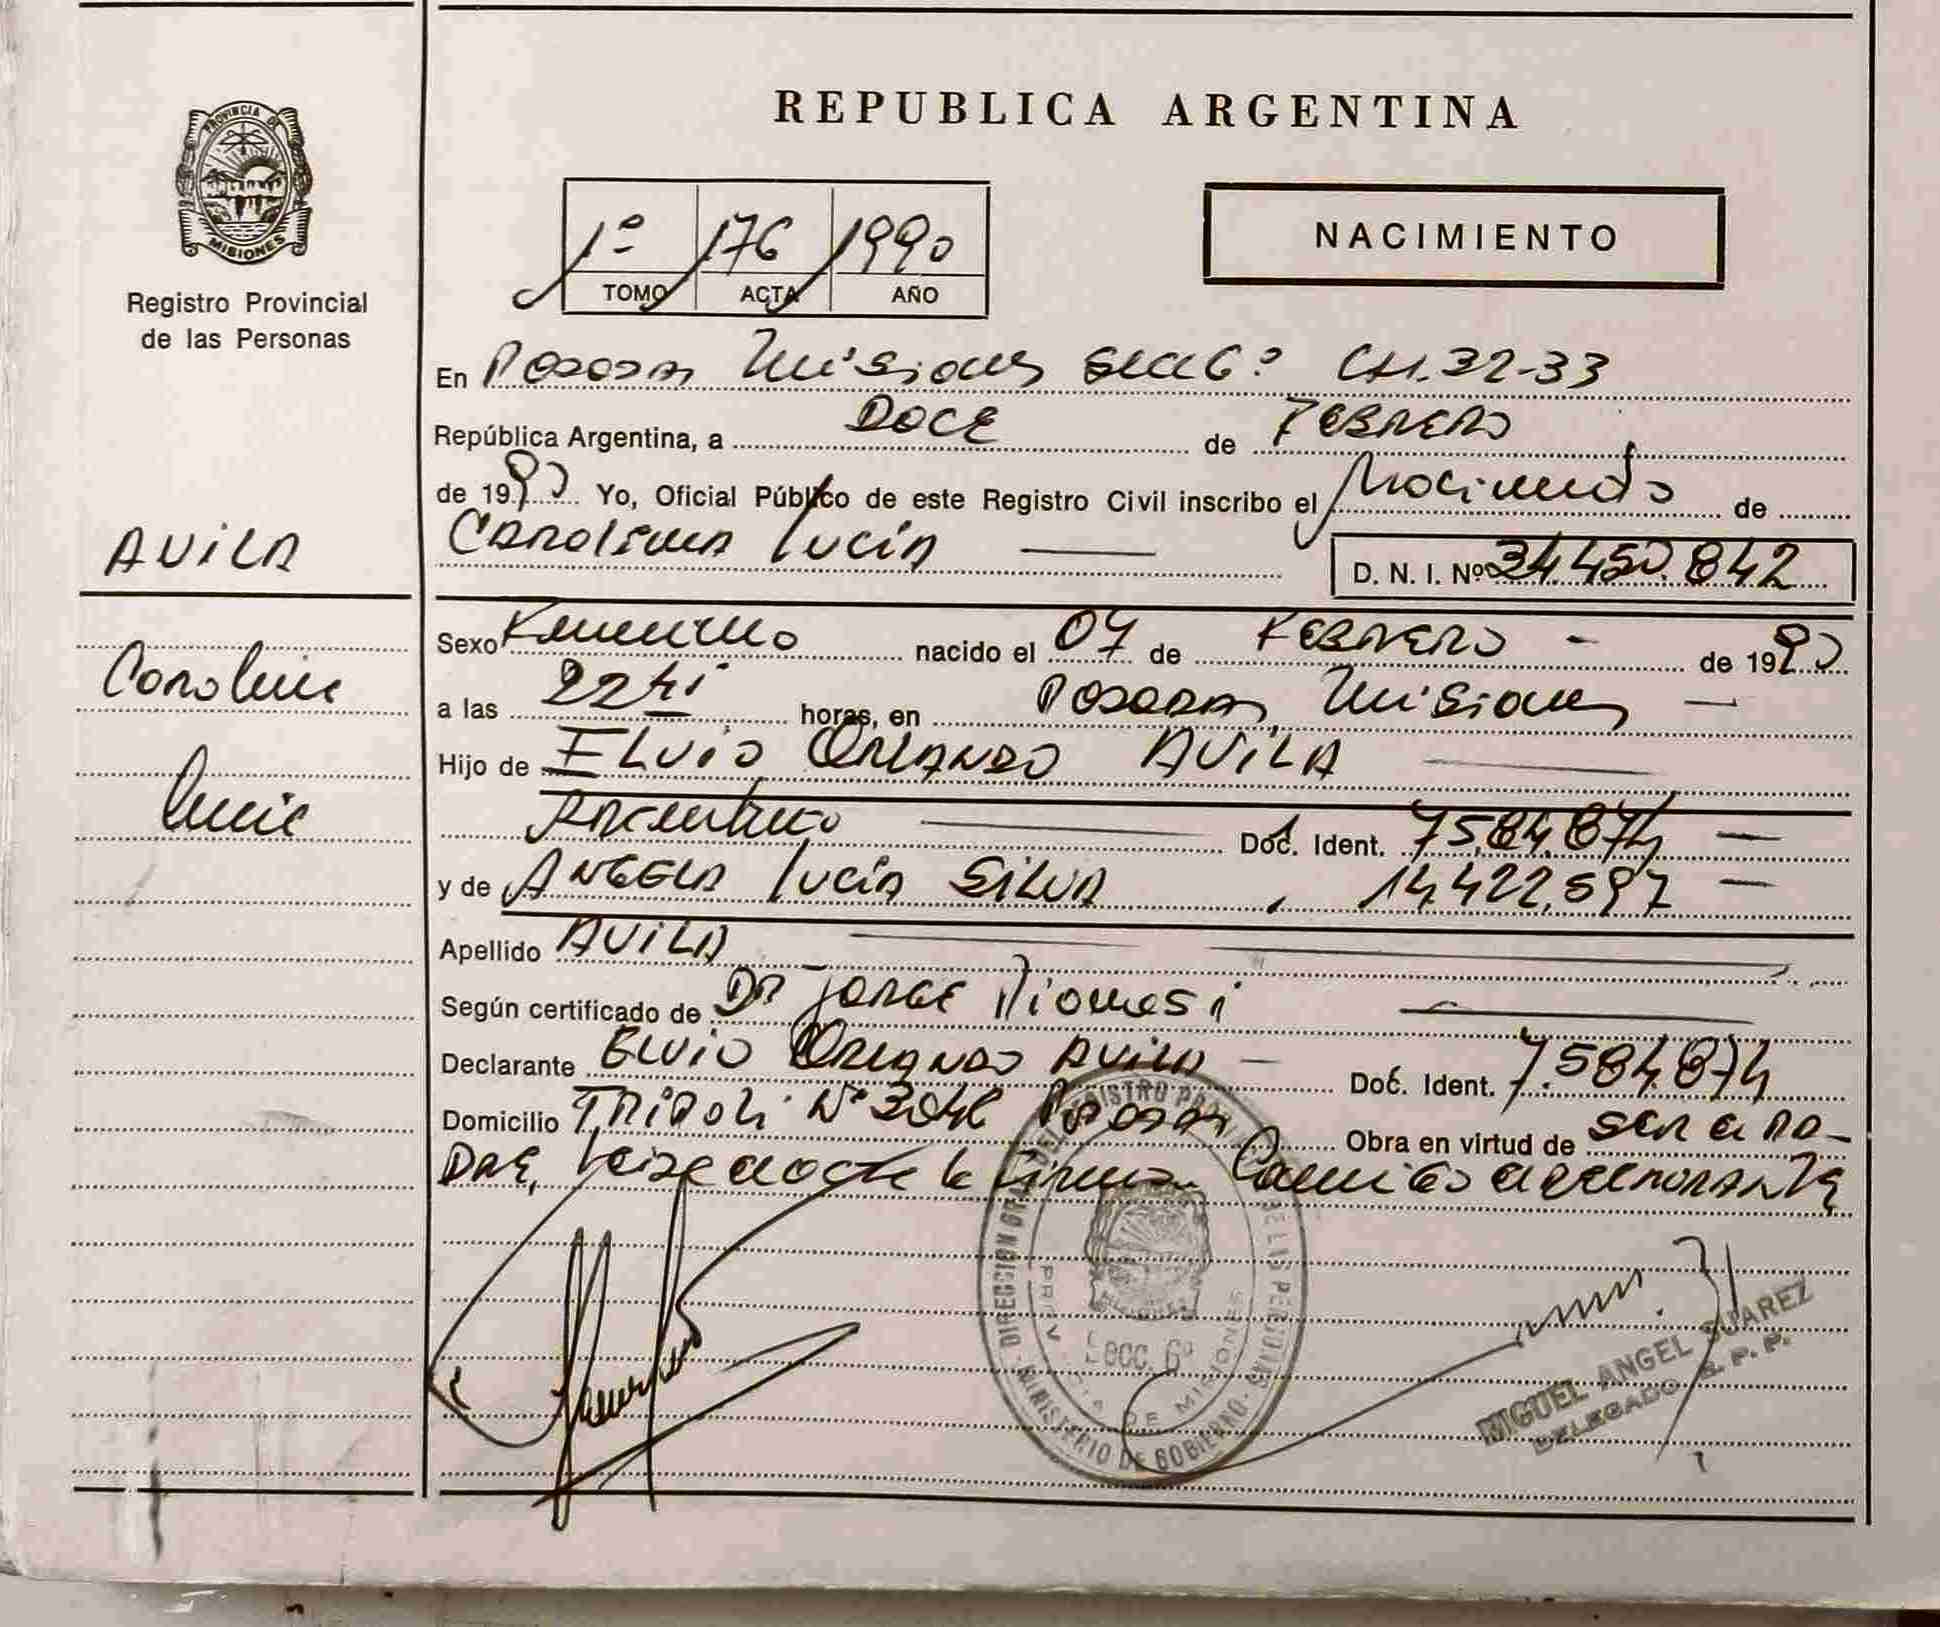 PROVINCIA DE
MISIONES
Registro Provincial
de las Personas
AVILA
Carolina
Lucia
REPUBLICA ARGENTINA
1º 176 1990
TOMO ACTA AÑO
NACIMIENTO
En Posadas Misiones Secc 6º CH. 32-33
República Argentina, a DOCE de FEBRERO
de 1990 Yo, Oficial Público de este Registro Civil inscribo el Nacimiento de
Carolina Lucía D. N. I. Nº 34.450.842
Sexo Femenino nacido el 07 de FEBRERO - de 1990
a las 22 hs horas, en Posadas, Misiones —
Hijo de ELVIO ORLANDO AVILA
Argentino Doc. Ident. 7.584.874 —
y de ANGELA Lucía SILVA , 14.422.597 —
Apellido AVILA
Según certificado de DR JORGE
Declarante ELVIO ORLANDO AVILA — Doc. Ident. 7.584.874
Domicilio TRIPOLI Nº Posadas Obra en virtud de SER el PA-
DRE, la firma
DIRECCION GRAL DEL REGISTRO PROV. DE LAS PERSONAS
PROVINCIA DE MISIONES
SECC. 6ª
MINISTERIO DE GOBIERNO
MIGUEL ANGEL SUAREZ
DELEGADO R. P. P.